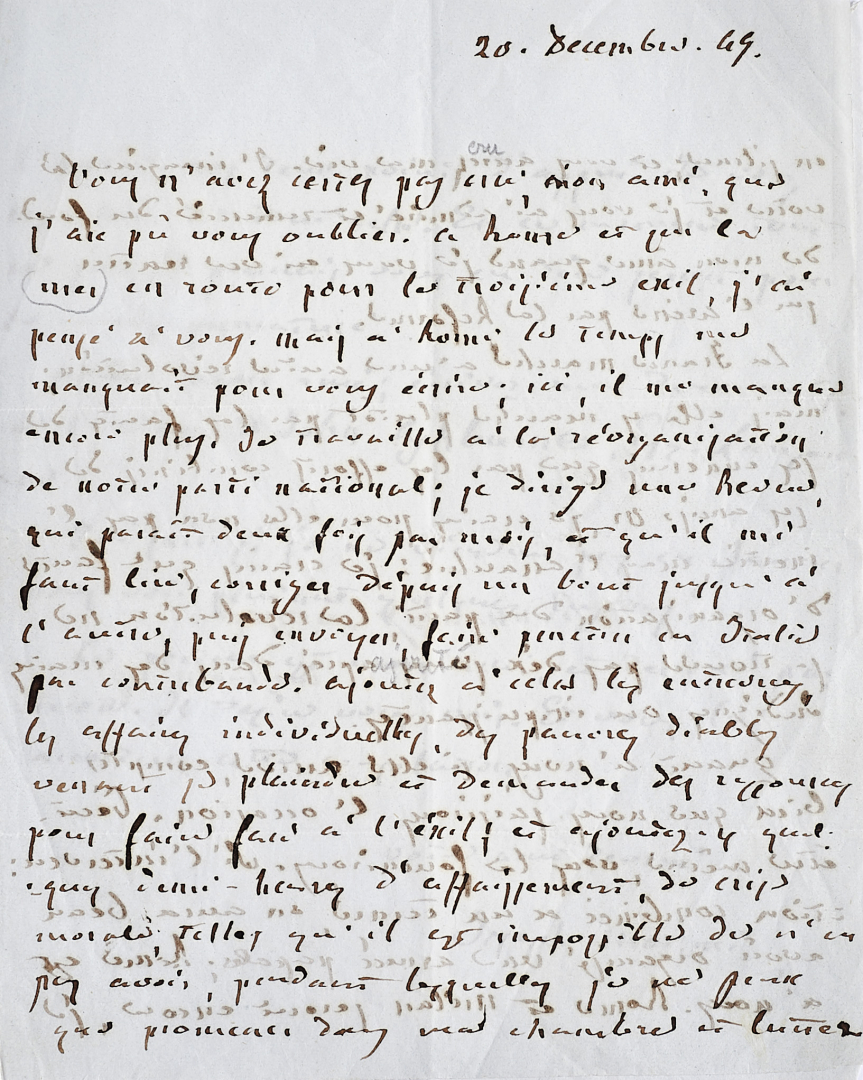 20. Decembre. 49.
cru
Vous n'avez certes pas cru, mon ami, que
j'aie pu vous oublier. a Rome et sur la
mer en route pour le troisième exil, j'ai
pensé à vous. mais à Rome le temps me
manquait pour vous écrire; ici, il me manque
encore plus. Je travaille à la réorganisation
de notre parti national; je dirige une Revue,
qui paraît deux fois par mois, et qu'il me
faut lire, corriger depuis un bout jusqu'à
l'autre, puis envoyer, faire pénétrer en Italie
ajoutez
par contrebande. ajoutez à cela les
les affaires individuelles, des pauvres diables
venant se plaindre et demander des ressources
pour faire face à l'éxil; et ajoutez-y quel-
-ques demi-heures d'affaissement, de crise
morale, telles qu'il est impossible de n'en
pas avoir, pendant lesquelles je ne peux
que promener dans ma chambre et lutter